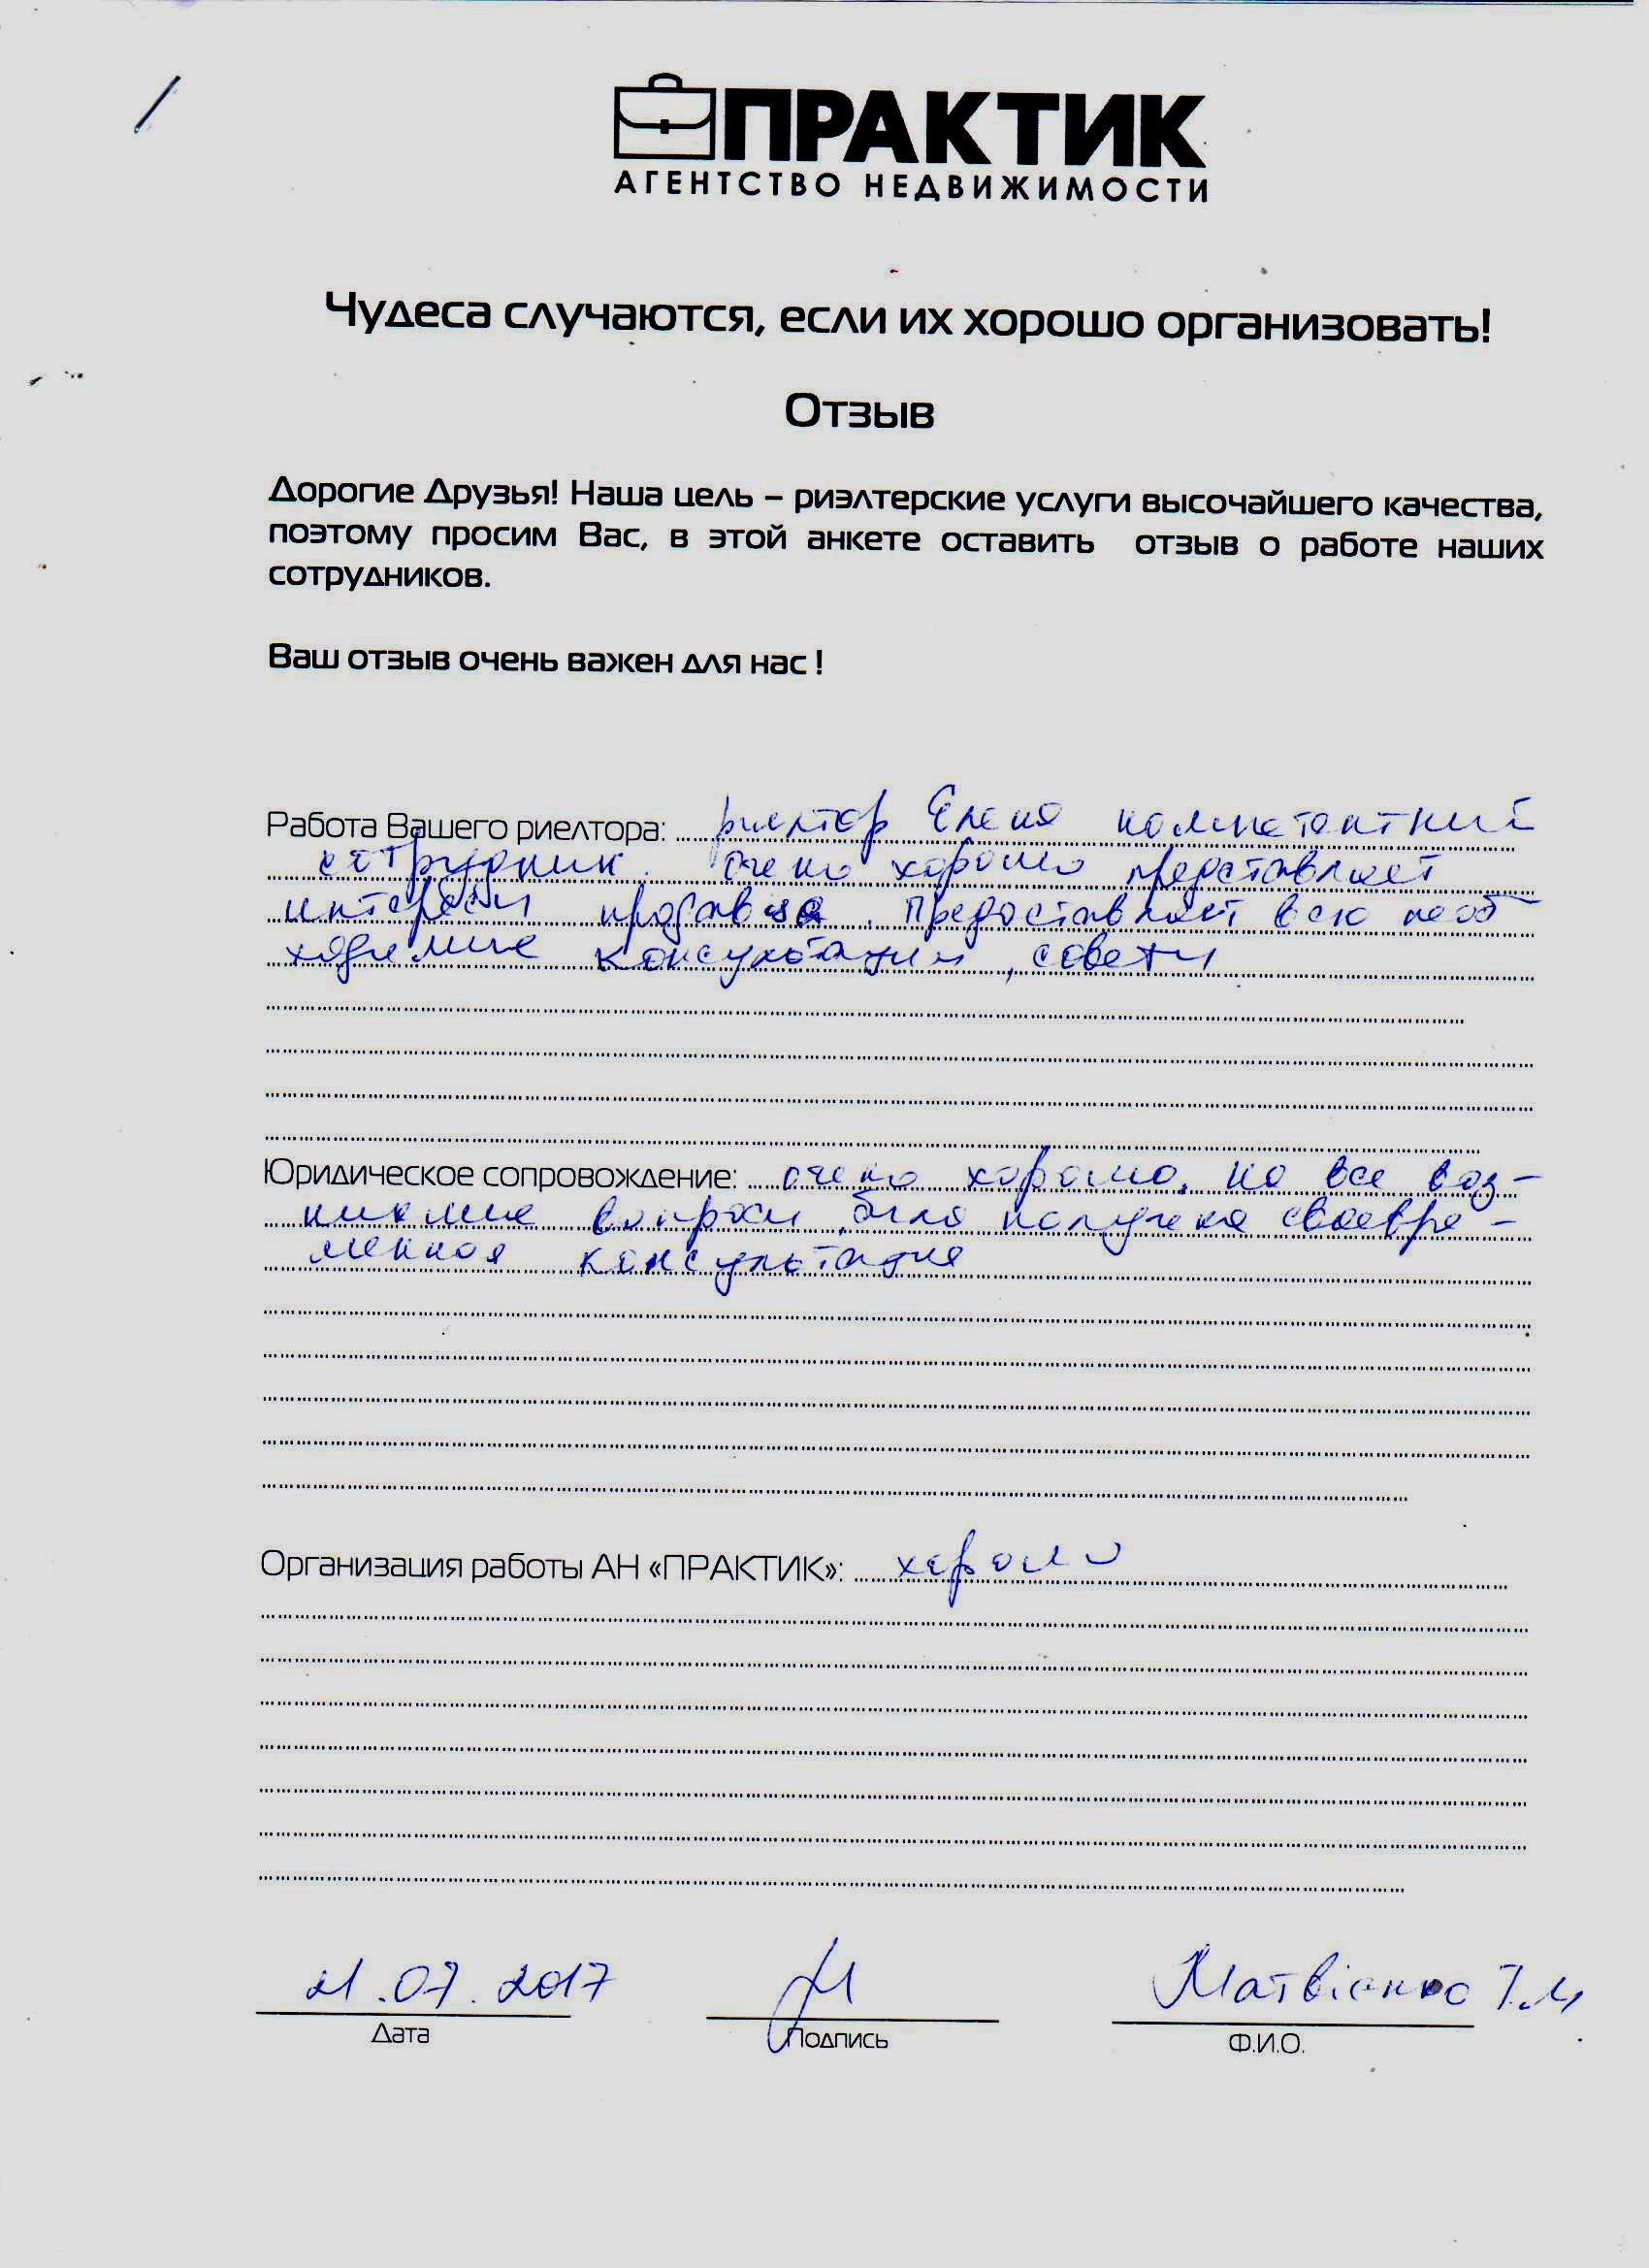 ПРАКТИК
АГЕНТСТВО НЕДВИЖИМОСТИ
Чудеса случаются, если их хорошо организовать!
Отзыв
Дорогие Друзья! Наша цель – риэлтерские услуги высочайшего качества,
поэтому просим Вас, в этой анкете оставить отзыв о работе наших
сотрудников.
Ваш отзыв очень важен для нас !
Работа Вашего риелтора: риелтор Елена компетентный
сотрудник. Очень хорошо представляет
интересы продавца. Предоставляет всю необ
ходимые консультации, советы
Юридическое сопровождение: очень хорошо. На все воз-
никшие вопросы была получена своевре-
менная консультация
Организация работы АН «ПРАКТИК»: хорошо
21.07.2017
Матвієнко Т.М.
Дата
Подпись
Ф.И.О.